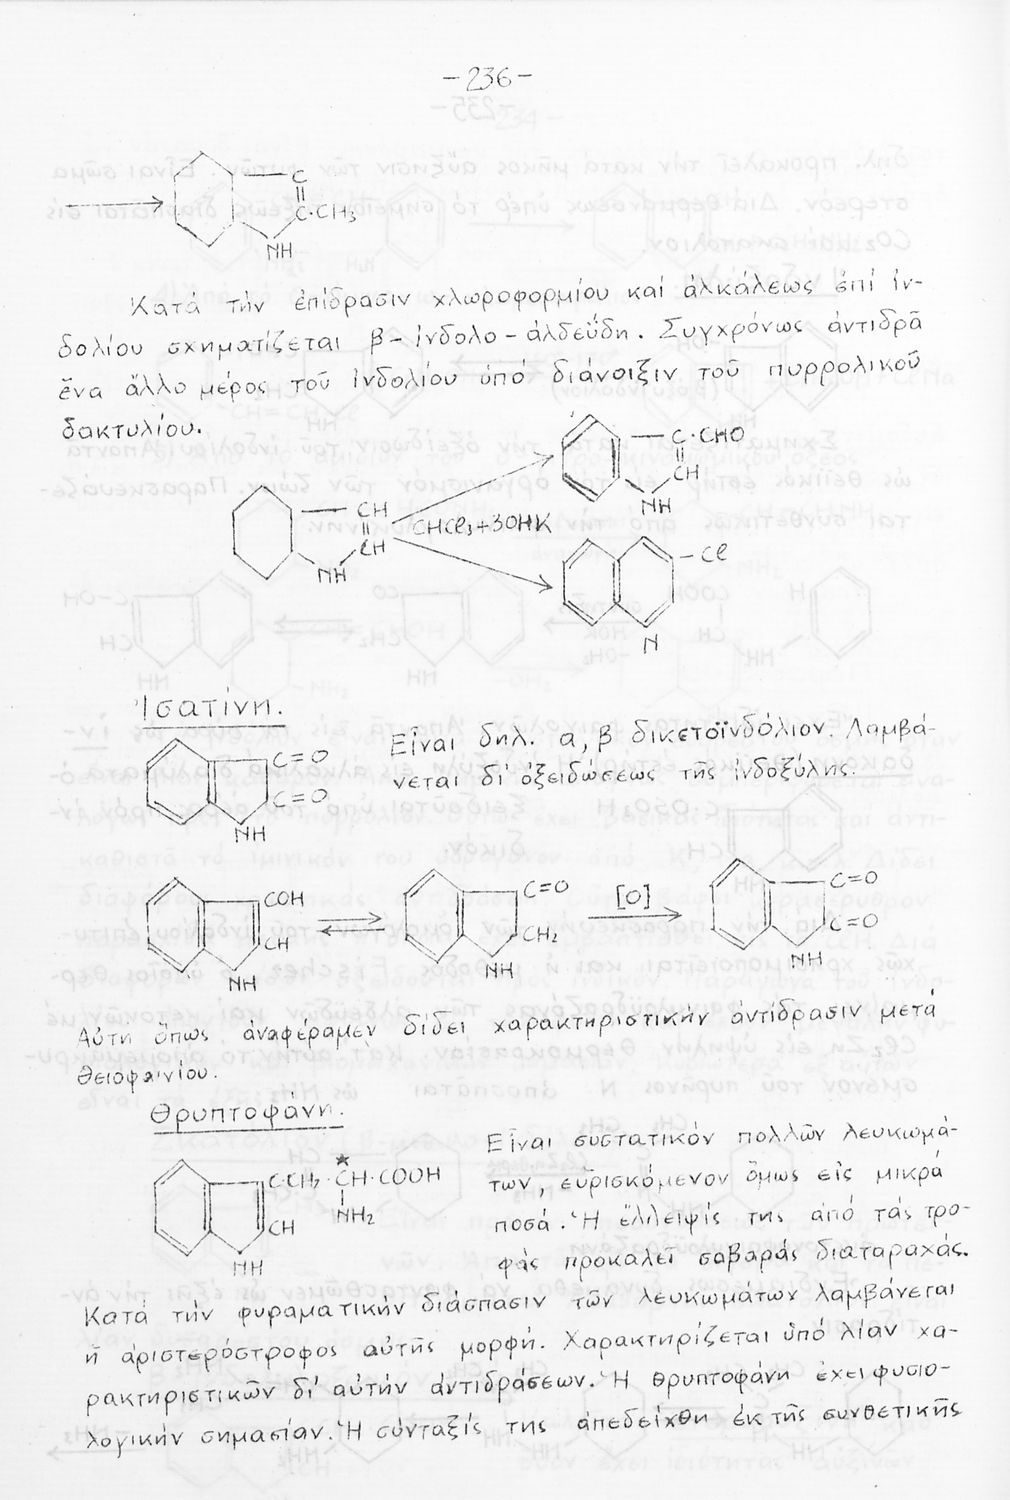 -236-
C
C·CH3
NH
Κατά τήν ἐπίδρασιν χλωροφορμίου καί ἀλκάλεως ἐπί ἰν-
δολίου σχηματίζεται β-ἰνδολο-ἀλδεΰδη. Συγχρόνως ἀντιδρᾶ
ἕνα ἄλλο μέρος τοῦ ἰνδολίου ὑπό διάνοιξιν τοῦ πυρρολικοῦ
δακτυλίου.
C·CHO
CH
NH
CH
CH
NH
CHCl3+3OHK
-Cl
N
Ἰσατίνη.
C=O
C=O
NH
Εἶναι δηλ. α,β δικετοϊνδόλιον. Λαμβά-
νεται δι' ὀξειδώσεως τῆς ἰνδοξύλης.
COH
CH
NH
C=O
CH2
NH
[O]
C=O
C=O
NH
Αὐτή ὅπως ἀναφέραμεν δίδει χαρακτηριστικήν ἀντίδρασιν μετά
θειοφαινίου.
Θρυπτοφάνη.
C·CH2·CH·COOH
*
NH2
CH
NH
Εἶναι συστατικόν πολλῶν λευκωμά-
των, εὑρισκόμενον ὅμως εἰς μικρά
ποσά. Ἡ ἔλλειψίς της ἀπό τάς τρο-
φάς προκαλεῖ σοβαράς διαταραχάς.
Κατά τήν φυραματικήν διάσπασιν τῶν λευκωμάτων λαμβάνεται
ἡ ἀριστερόστροφος αὐτῆς μορφή. Χαρακτηρίζεται ὑπό λίαν χα-
ρακτηριστικῶν δι' αὐτήν ἀντιδράσεων. Ἡ θρυπτοφάνη ἔχει φυσιο-
λογικήν σημασίαν. Ἡ σύνταξίς της ἀπεδείχθη ἐκ τῆς συνθετικῆς